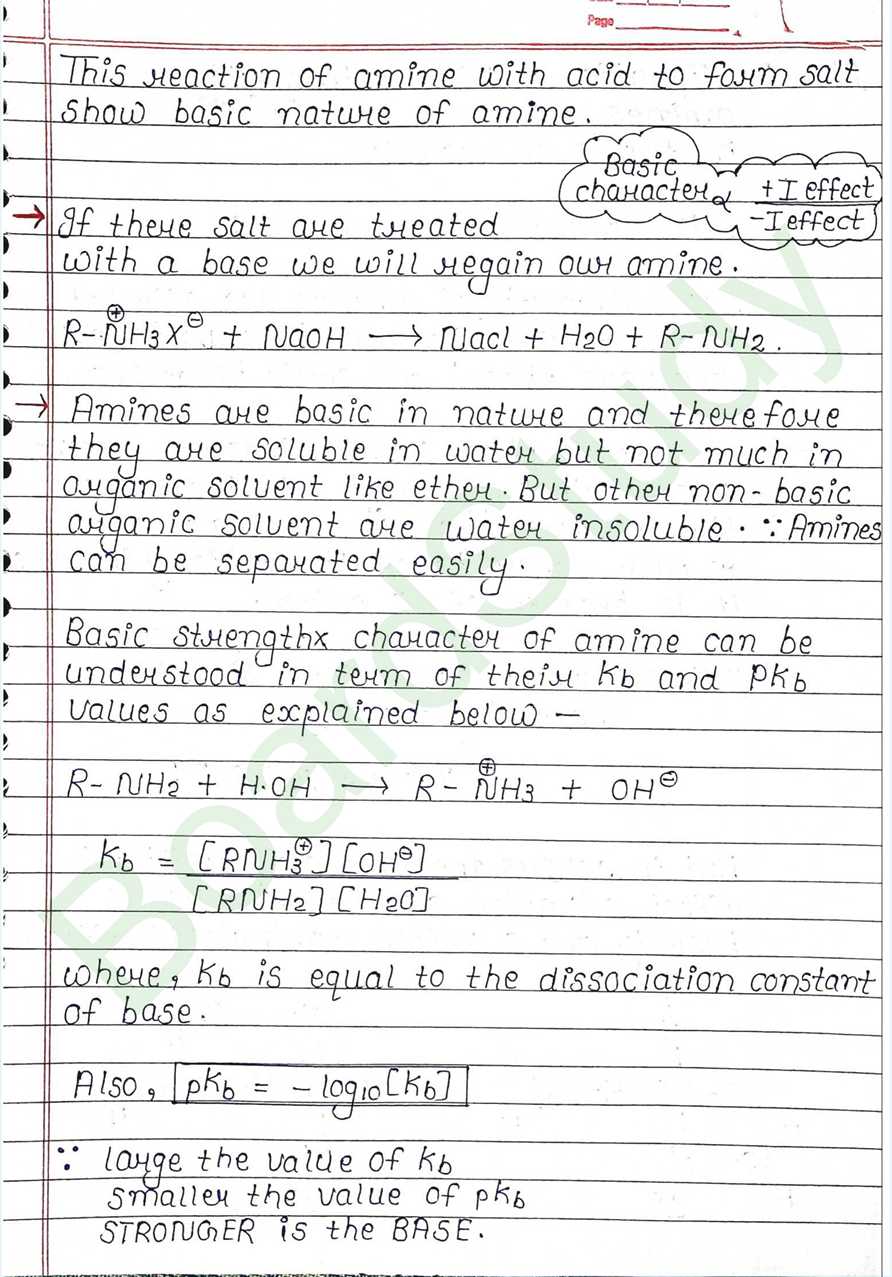 Page
This reaction of amine with acid to form salt
show basic nature of amine.
Basic
character ∝ +I effect
-I effect
→ If there salt are treated
with a base we will regain our amine.
R-N⊕H3X⊖ + NaOH → Nacl + H2O + R-NH2.
→ Amines are basic in nature and therefore
they are soluble in water but not much in
organic solvent like ether. But other non-basic
organic solvent are water insoluble. ∵ Amines
can be separated easily.
Basic strengthx character of amine can be
understood in term of their Kb and PKb
values as explained below -
R-NH2 + H·OH → R-N⊕H3 + OH⊖
Kb = [RNH3⊕][OH⊖]
[RNH2][H2O]
where, Kb is equal to the dissociation constant
of base.
Also, pKb = -log10[Kb]
∵ large the value of Kb
smaller the value of pKb
STRONGER is the BASE.
BoardStudy